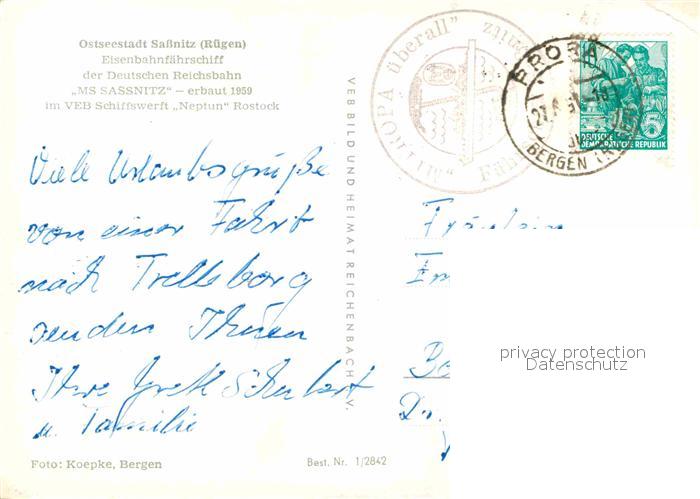 Ostseestadt Saßnitz (Rügen)
Eisenbahnfährschiff
der Deutschen Reichsbahn
„MS SASSNITZ" – erbaut 1959
im VEB Schiffswerft „Neptun" Rostock
Viele Urlaubsgrüße
von einer Fahrt
nach Trelleborg
senden Ihnen
Ihre
u. Familie
Foto: Koepke, Bergen
Best. Nr. 1/2842
VEB BILD UND HEIMAT REICHENBACH
„MITROPA überall"
PRORA
BERGEN
DEUTSCHE
DEMOKRATISCHE REPUBLIK
5
Fräulein
privacy protection
Datenschutz